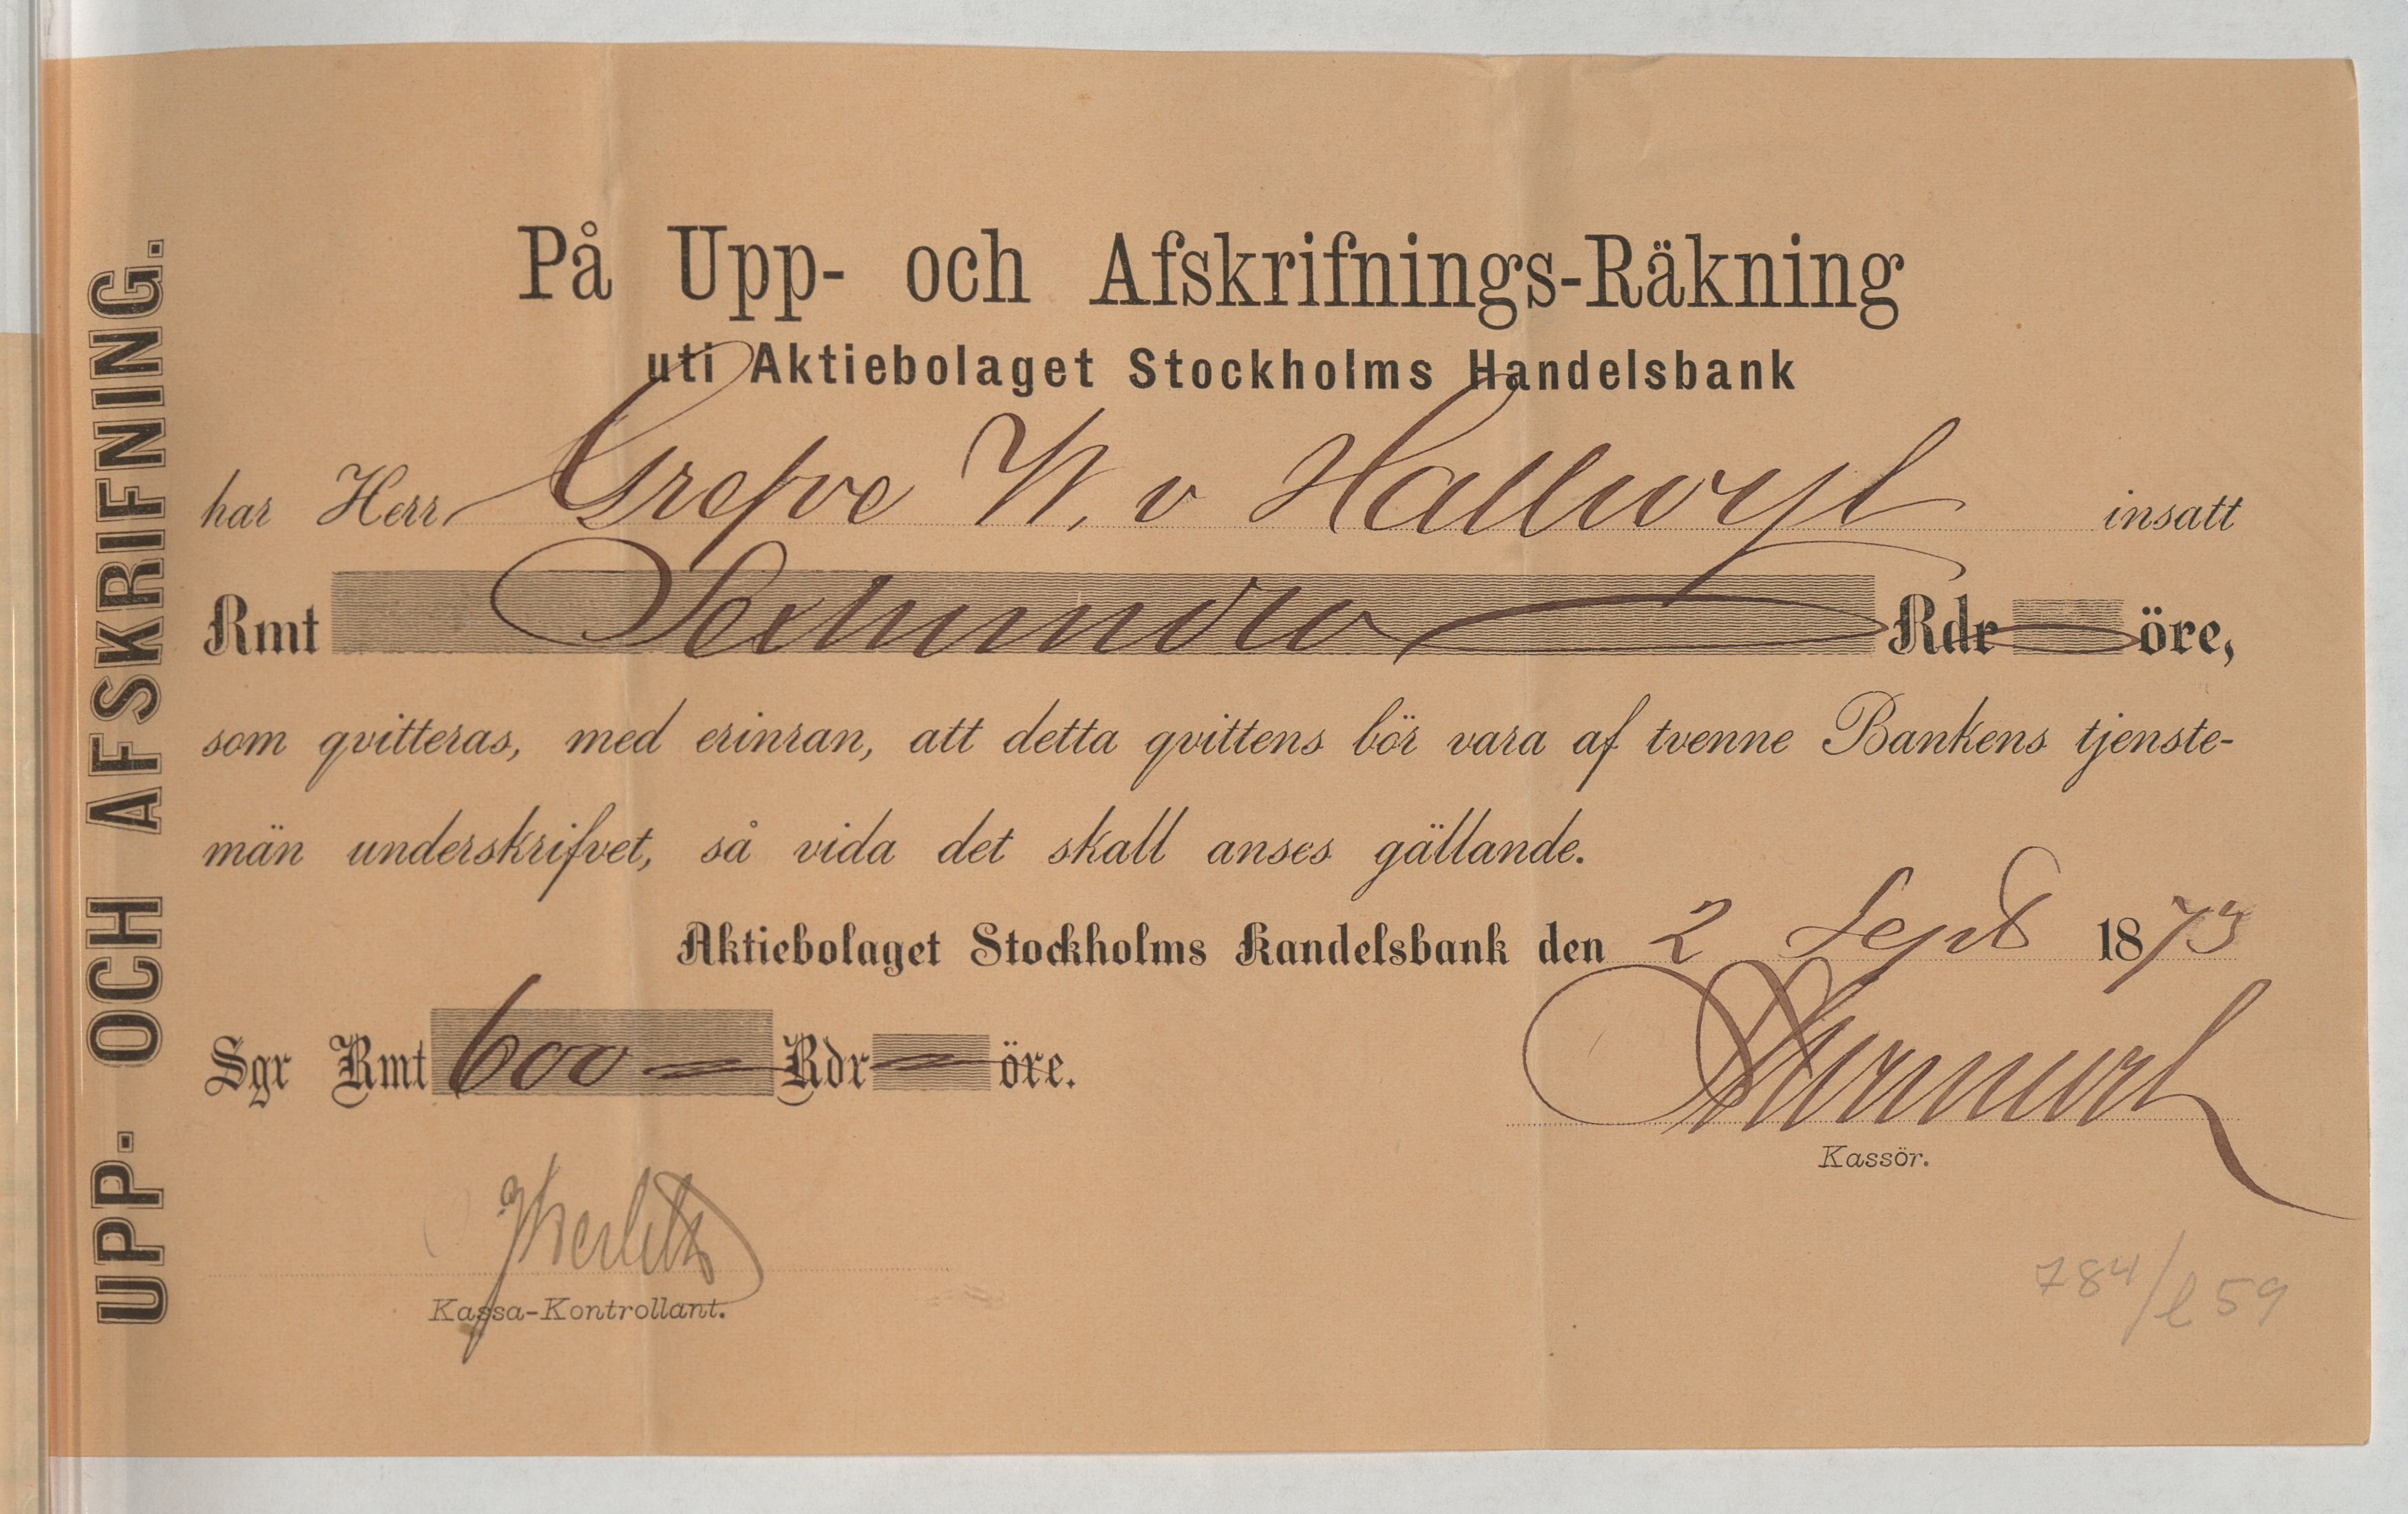 UPP- OCH AFSKRIFNING.
På Upp- och Afskrifnings-Räkning
uti Aktiebolaget Stockholms Handelsbank
har Herr Grefve W. v Hallwyl insatt
Rmt Sexhundra Rdr öre,
som qvitteras, med erinran, att detta qvittens bör vara af tvenne Bankens tjenste-
män underskrifvet, så vida det skall anses gällande.
Aktiebolaget Stockholms Handelsbank den 2 Sept 1873
Sgr Rmt 600 Rdr öre.
Kassör.
Kassa-Kontrollant.
784/l 59